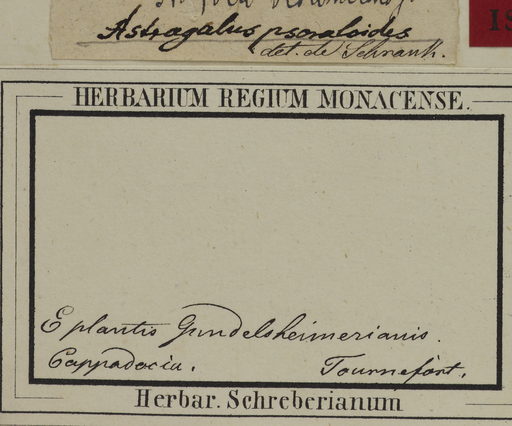 Astragalus psoraloides
det. de Schrank.
HERBARIUM REGIUM MONACENSE.
E plantis Gundelsheimerianis.
Cappadocia. Tournefort.
Herbar. Schreberianum